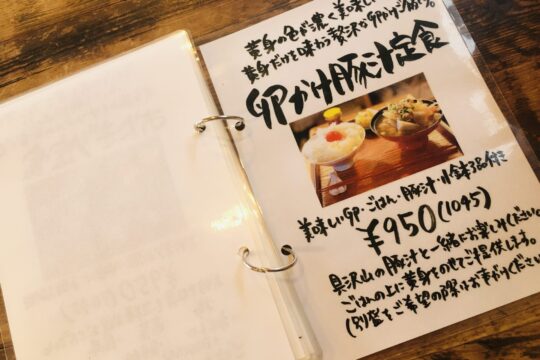 黄身の色が濃く美味しい
黄身だけを味わう贅沢な卵かけごはん
卵かけ豚汁定食
美味しい卵・ごはん・豚汁・小鉢3品付き
¥950(1045)
具沢山の豚汁と一緒にお楽しみください。
ごはんの上に黄身をのせてご提供します。
(別盛をご希望の際はお声がけください